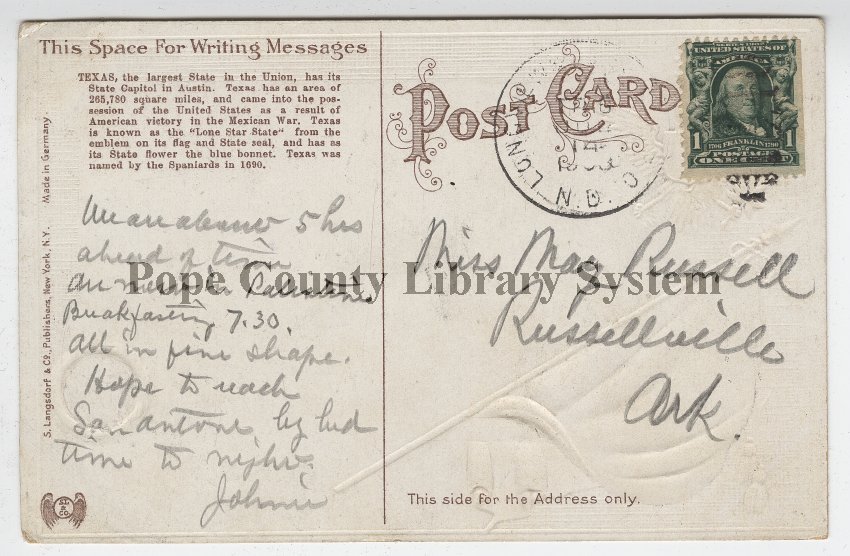 This Space For Writing Messages
TEXAS, the largest State in the Union, has its
State Capitol in Austin. Texas has an area of
265,780 square miles, and came into the pos-
session of the United States as a result of
American victory in the Mexican War. Texas
is known as the "Lone Star State" from the
emblem on its flag and State seal, and has as
its State flower the blue bonnet. Texas was
named by the Spaniards in 1690.
5 hrs
ahead of time
Palestine
Breakfasting 7.30.
All in fine shape.
Hope to reach
San antone by bed
time to night.
Johnie
S. Langsdorf & Co., Publishers, New York, N.Y. Made in Germany.
S.L.
& CO.
POST CARD
LON
N.D.
SERIES 1902
UNITED STATES OF
AMERICA
1706 FRANKLIN 1790
1
POSTAGE
ONE CENT
Miss May Russell
Russellville
Ark.
This side for the Address only.
Pope County Library System